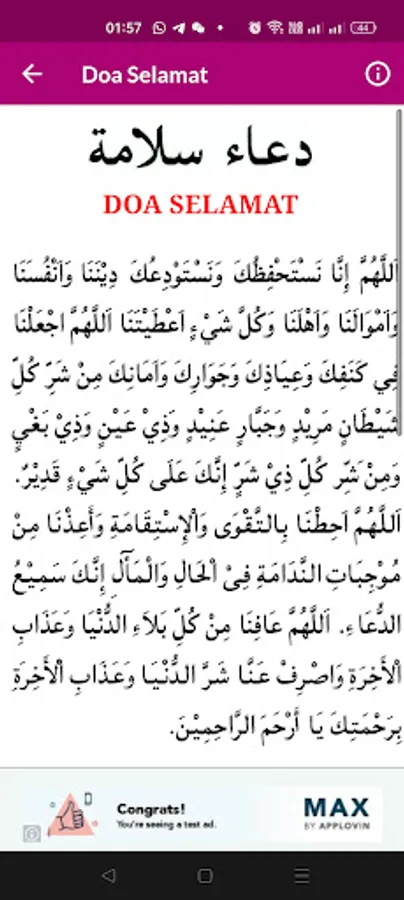 01:57
44
Doa Selamat
دعاء سلامة
DOA SELAMAT
اَللَّهُمَّ إِنَّا نَسْتَحْفِظُكَ وَنَسْتَوْدِعُكَ دِيْنَنَا وَاَنْفُسَنَا
وَاَمْوَالَنَا وَاَهْلَنَا وَكُلَّ شَيْءٍ اَعْطَيْتَنَا اَللَّهُمَّ اجْعَلْنَا
فِي كَنَفِكَ وَعِيَاذِكَ وَجَوَارِكَ وَاَمَانِكَ مِنْ شَرِّ كُلِّ
شَيْطَانٍ مَرِيْدٍ وَجَبَّارٍ عَنِيْدٍ وَذِيْ عَيْنٍ وَذِيْ بَغْيٍ
وَمِنْ شَرِّ كُلِّ ذِيْ شَرٍّ إِنَّكَ عَلَى كُلِّ شَيْءٍ قَدِيْرٌ.
اَللَّهُمَّ اَحِطْنَا بِالتَّقْوَى وَالْاِسْتِقَامَةِ وَأَعِذْنَا مِنْ
مُوْجِبَاتِ النَّدَامَةِ فِىْ الْحَالِ وَالْمَآلِ إِنَّكَ سَمِيْعُ
الدُّعَاءِ. اَللَّهُمَّ عَافِنَا مِنْ كُلِّ بَلاَءِ الدُّنْيَا وَعَذَابِ
الْأَخِرَةِ وَاصْرِفْ عَنَّا شَرَّ الدُّنْيَا وَعَذَابِ الْأَخِرَةِ
بِرَحْمَتِكَ يَا أَرْحَمَ الرَّاحِمِيْنَ.
Congrats!
You're seeing a test ad.
MAX
BY APPLOVIN